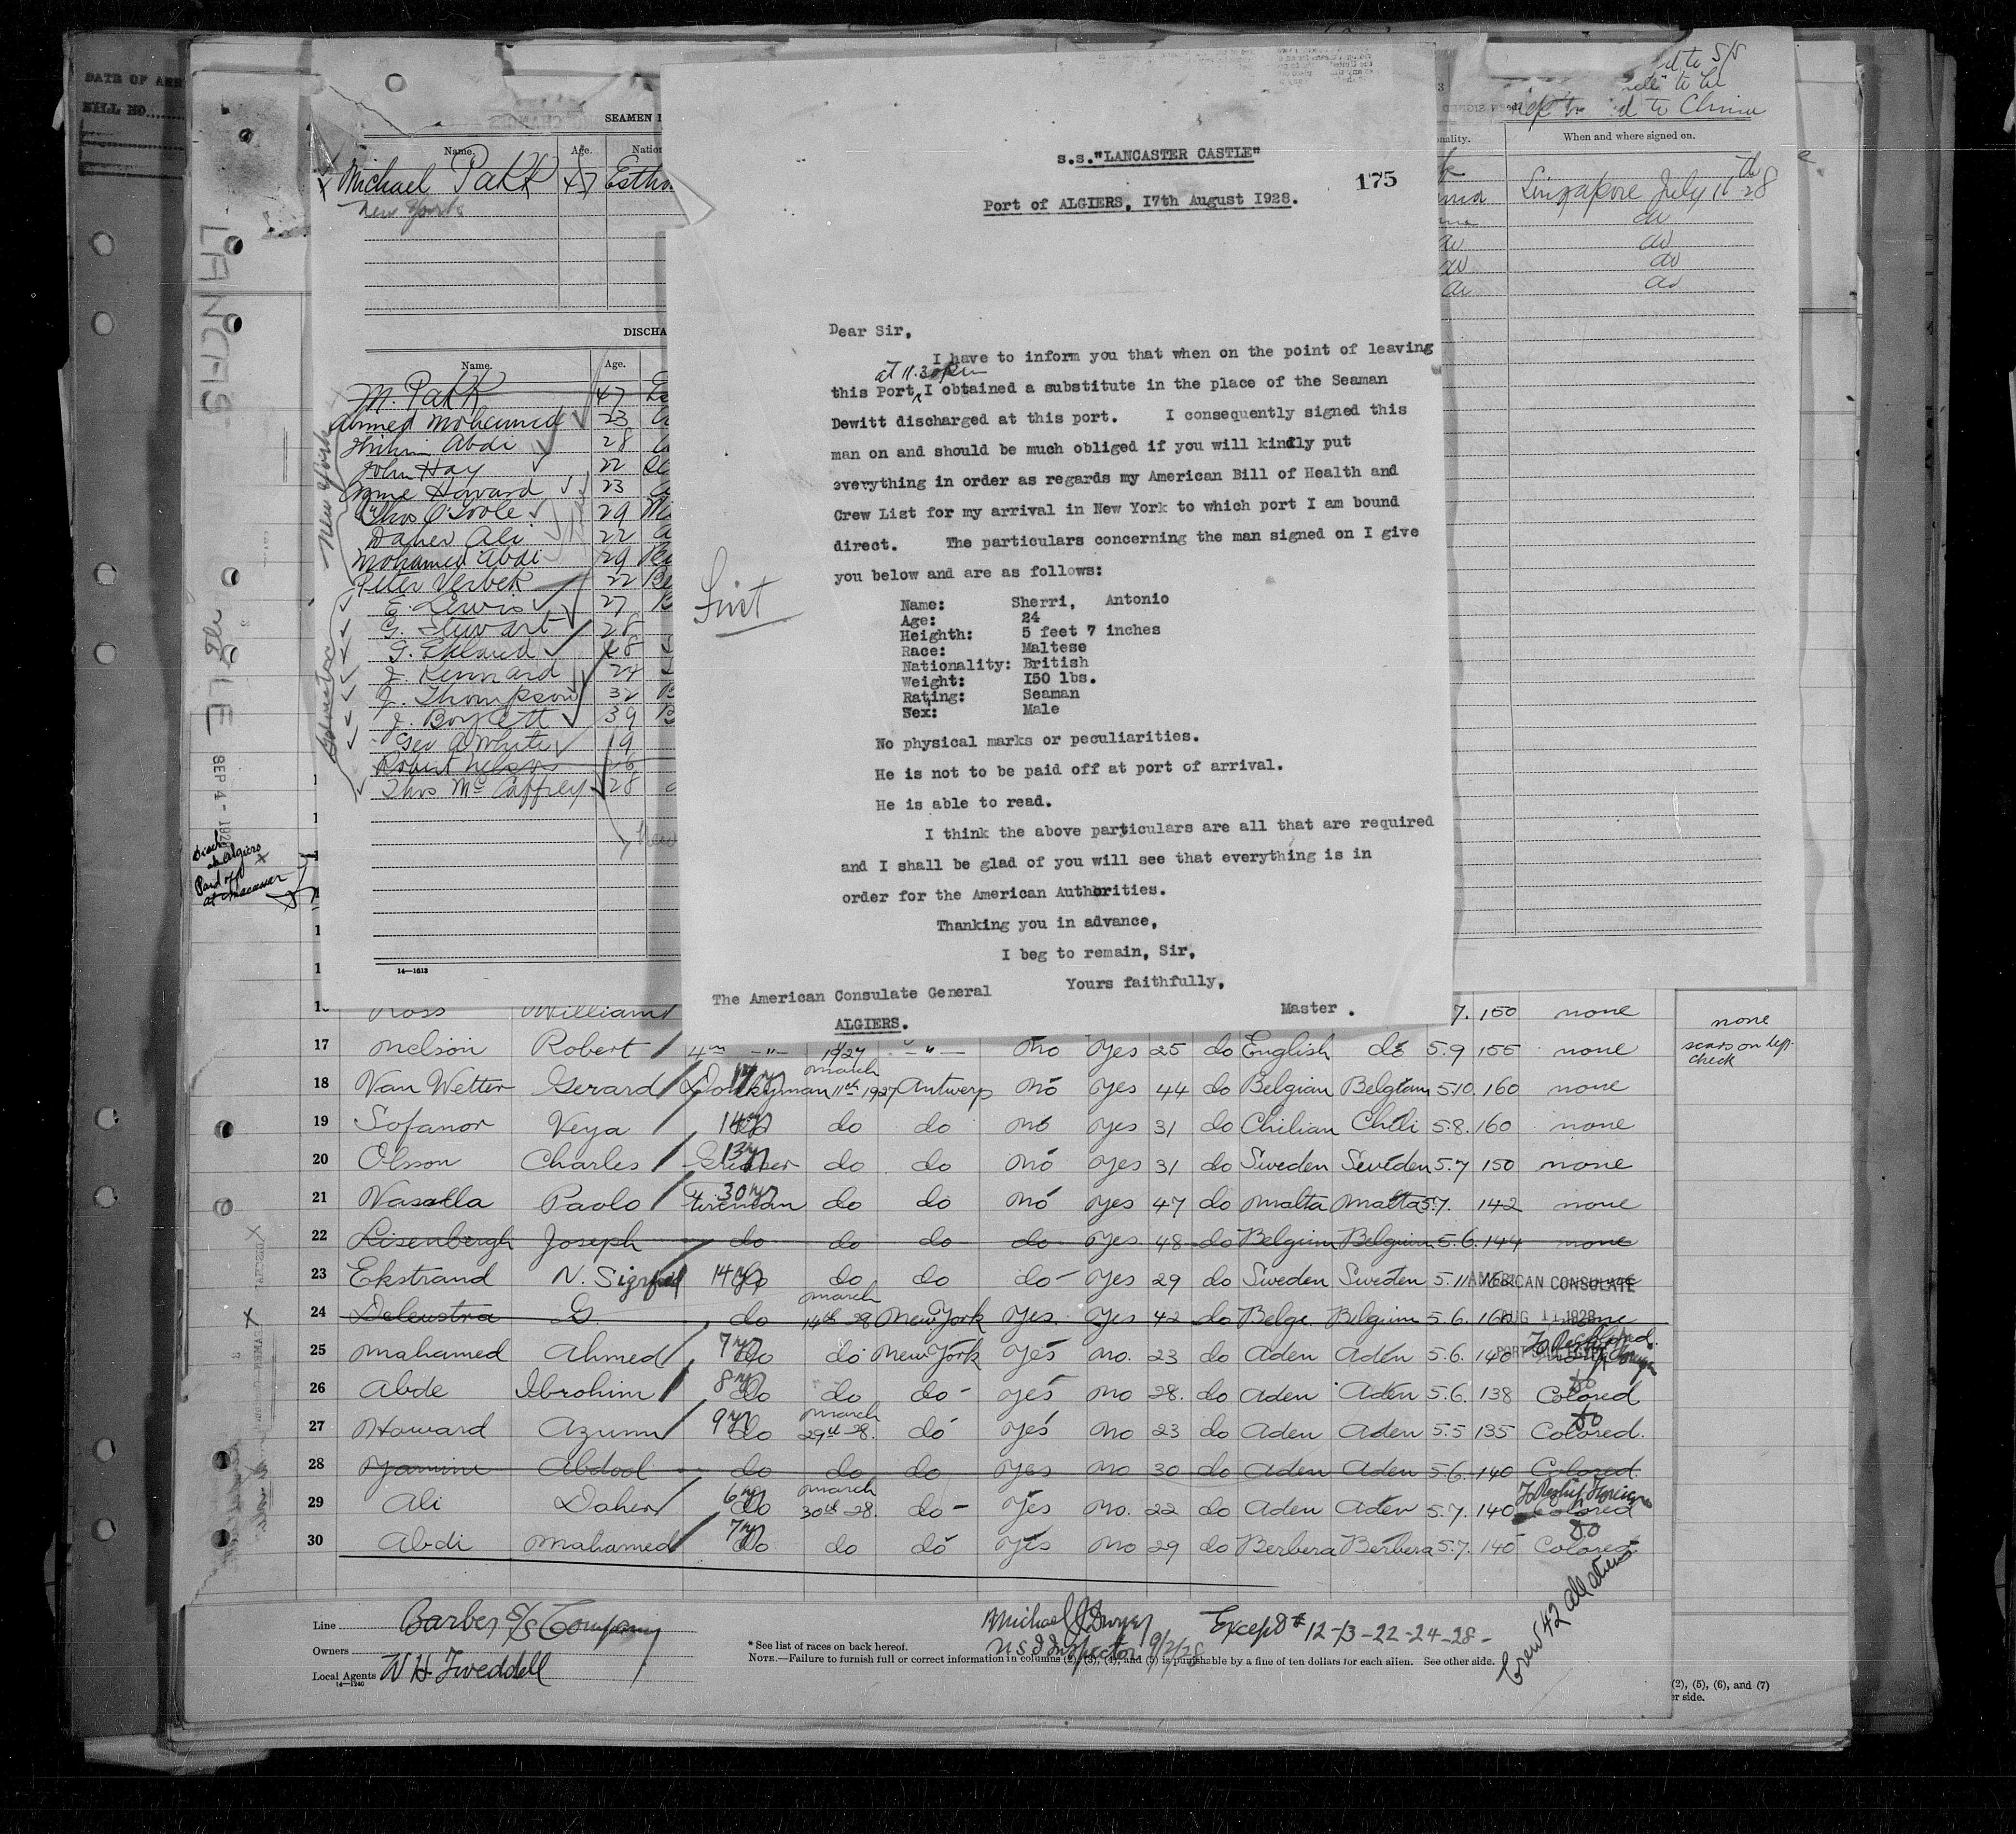 DATE OF ARR
BILL NO.
LANCAS
SEP 4 - 192
Disch
at Algiers
Paid off
at Macassar
SEAMEN
Name.
Age.
Michael Pakk 47 Estho
New York
DISCHA
Name.
Age.
New York
M. Pakk 47
Ahmed Mohamed 23
Abdi 28
John Hay 22
Howard 23
Thos O'Toole 29
Daher Ali 22
Mohamed Abdi 29
Peter Verbek 22
E. Lewis 27
G. Stuvart 28
G. Eklund 48
J. Kennard 24
J. Thompson 32
J. Boylett 39
Geo A White 19
Robert Nelson 26
Thos McCaffrey 28
14—1613
s.s."LANCASTER CASTLE"
175
Port of ALGIERS, 17th August 1928.
Dear Sir,
I have to inform you that when on the point of leaving
at 11.30 pm
this Port, I obtained a substitute in the place of the Seaman
Dewitt discharged at this port. I consequently signed this
man on and should be much obliged if you will kindly put
everything in order as regards my American Bill of Health and
Crew List for my arrival in New York to which port I am bound
direct. The particulars concerning the man signed on I give
you below and are as follows:
First
Name: Sherri, Antonio
Age: 24
Heighth: 5 feet 7 inches
Race: Maltese
Nationality: British
Weight: 150 lbs.
Rating: Seaman
Sex: Male
No physical marks or peculiarities.
He is not to be paid off at port of arrival.
He is able to read.
I think the above particulars are all that are required
and I shall be glad of you will see that everything is in
order for the American Authorities.
Thanking you in advance,
I beg to remain, Sir,
Yours faithfully,
The American Consulate General
Master .
ALGIERS.
to S/S
to be
to China
nality.
When and where signed on.
Singapore July 11th 28
do
do
do
do
Ross William 7. 150 none
none
17 Nelson Robert 4th -"- 1927 -"- no yes 25 do English do 5.9 155 none
scars on left
check
18 Van Wetter Gerard Donkeyman March 11th 1927 Antwerp no yes 44 do Belgian Belgium 5.10. 160 none
19 Sofanor Veya 14 yr do do do no yes 31 do Chilian Chili 5.8. 160 none
20 Olsson Charles 13 yr Greaser do do no yes 31 do Sweden Sweden 5.7 150 none
21 Vasalla Paolo 30 yr Fireman do do no yes 47 do Malta Malta 5.7. 142 none
22 Lisenbergh Joseph do do do do yes 48 do Belgium Belgium 5.6. 144 none
23 Ekstrand N. Sigrfid 14 yr do do do do yes 29 do Sweden Sweden 5.11 168
AMERICAN CONSULATE
24 Deleustra G. do March 14th 28 New York yes. yes 42 do Belge. Belgium 5.6. 160 none
AUG 11 1928
25 Mahamed Ahmed 7 yr do do New York yes no. 23 do Aden Aden 5.6. 140
PORT SAID, EGYPT
26 Abde Ibrohim 8 yr do do do yes no 28. do Aden Aden 5.6. 138 Colored
27 Howard Azumi 9 yr do March 29th 28. do yes no 23 do Aden Aden 5.5 135 Colored.
28 Yamini Abdool do do do yes no 30 do Aden Aden 5.6. 140 Colored.
29 Ali Daher 6 yr do March 30th 28. do yes no. 22 do Aden Aden 5.7. 140 Colored
30 Abdi Mahamed 7 yr do do do yes no 29 do Berbera Berbera 5.7. 140 Colored
Crew 42 all aliens
Line Barber S/S Company
Owners
Local Agents W H Tweddell
14—1240
Michael J Dwyer
U S I Inspector 9/2/28
Except # 12-13-22-24-28-
* See list of races on back hereof.
NOTE.—Failure to furnish full or correct information in columns (2), (3), (4), and (5) is punishable by a fine of ten dollars for each alien. See other side.
(2), (5), (6), and (7)
er side.